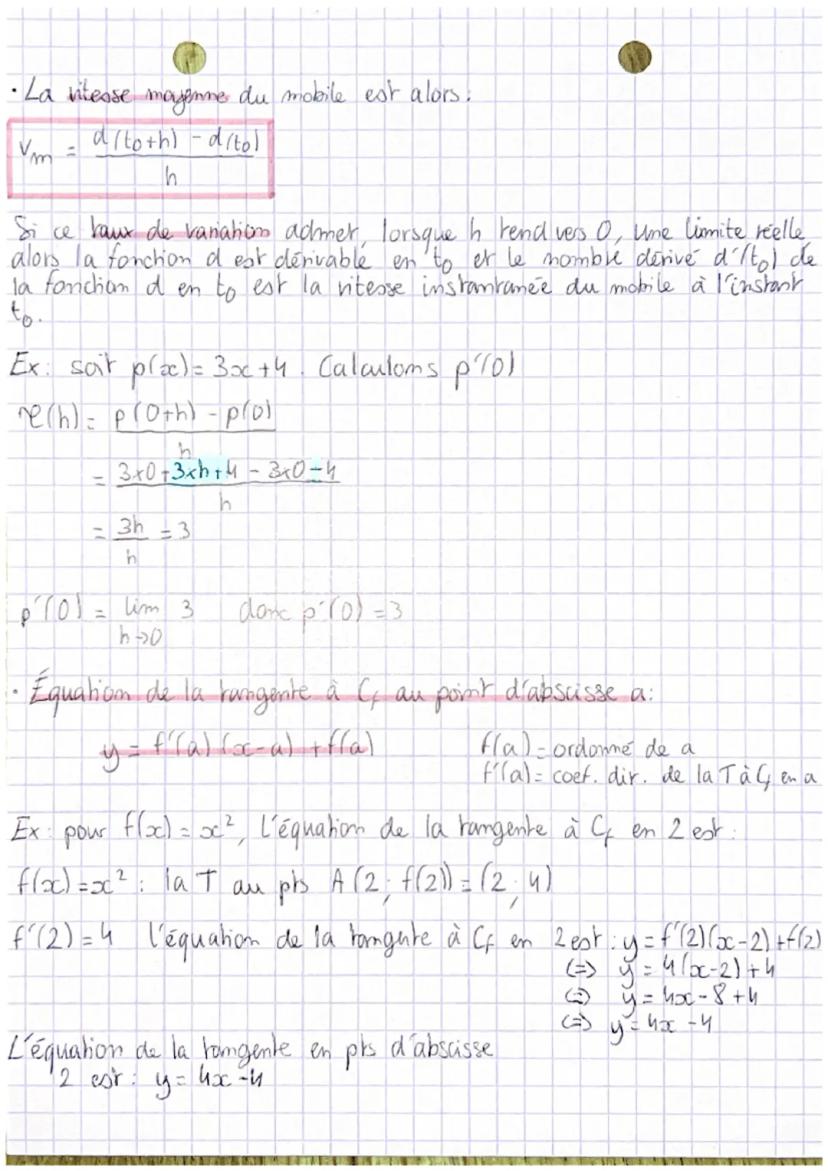 · La vitesse moyenne du mobile est alors :
Vm = d(t0+h) - d(t0) / h
Si ce taux de variation admet, lorsque h tend vers 0, une limite réelle
alors la fonction d est dérivable en t0 et le nombre dérivé d'(t0) de
la fonction d en t0 est la vitesse instantanée du mobile à l'instant
t0.
Ex : soit p(x) = 3x+4. Calculons p'(0)
τ(h) = p(0+h) - p(0) / h
= 3x0+3xh+4 - 3x0-4 / h
= 3h / h = 3
p'(0) = lim 3 donc p'(0) = 3
h→0
· Équation de la tangente à Cf au point d'abscisse a :
y = f'(a) (x-a) + f(a) f(a) = ordonné de a
f'(a) = coef. dir. de la T à Cf en a
Ex : pour f(x) = x², l'équation de la tangente à Cf en 2 est :
f(x) = x² : la T au pts A (2 ; f(2)) = (2 ; 4)
f'(2) = 4 l'équation de la tangente à Cf en 2 est : y = f'(2)(x-2) + f(2)
(=) y = 4(x-2) + 4
(=) y = 4x - 8 + 4
(=) y = 4x - 4
L'équation de la tangente en pts d'abscisse
2 est : y = 4x - 4